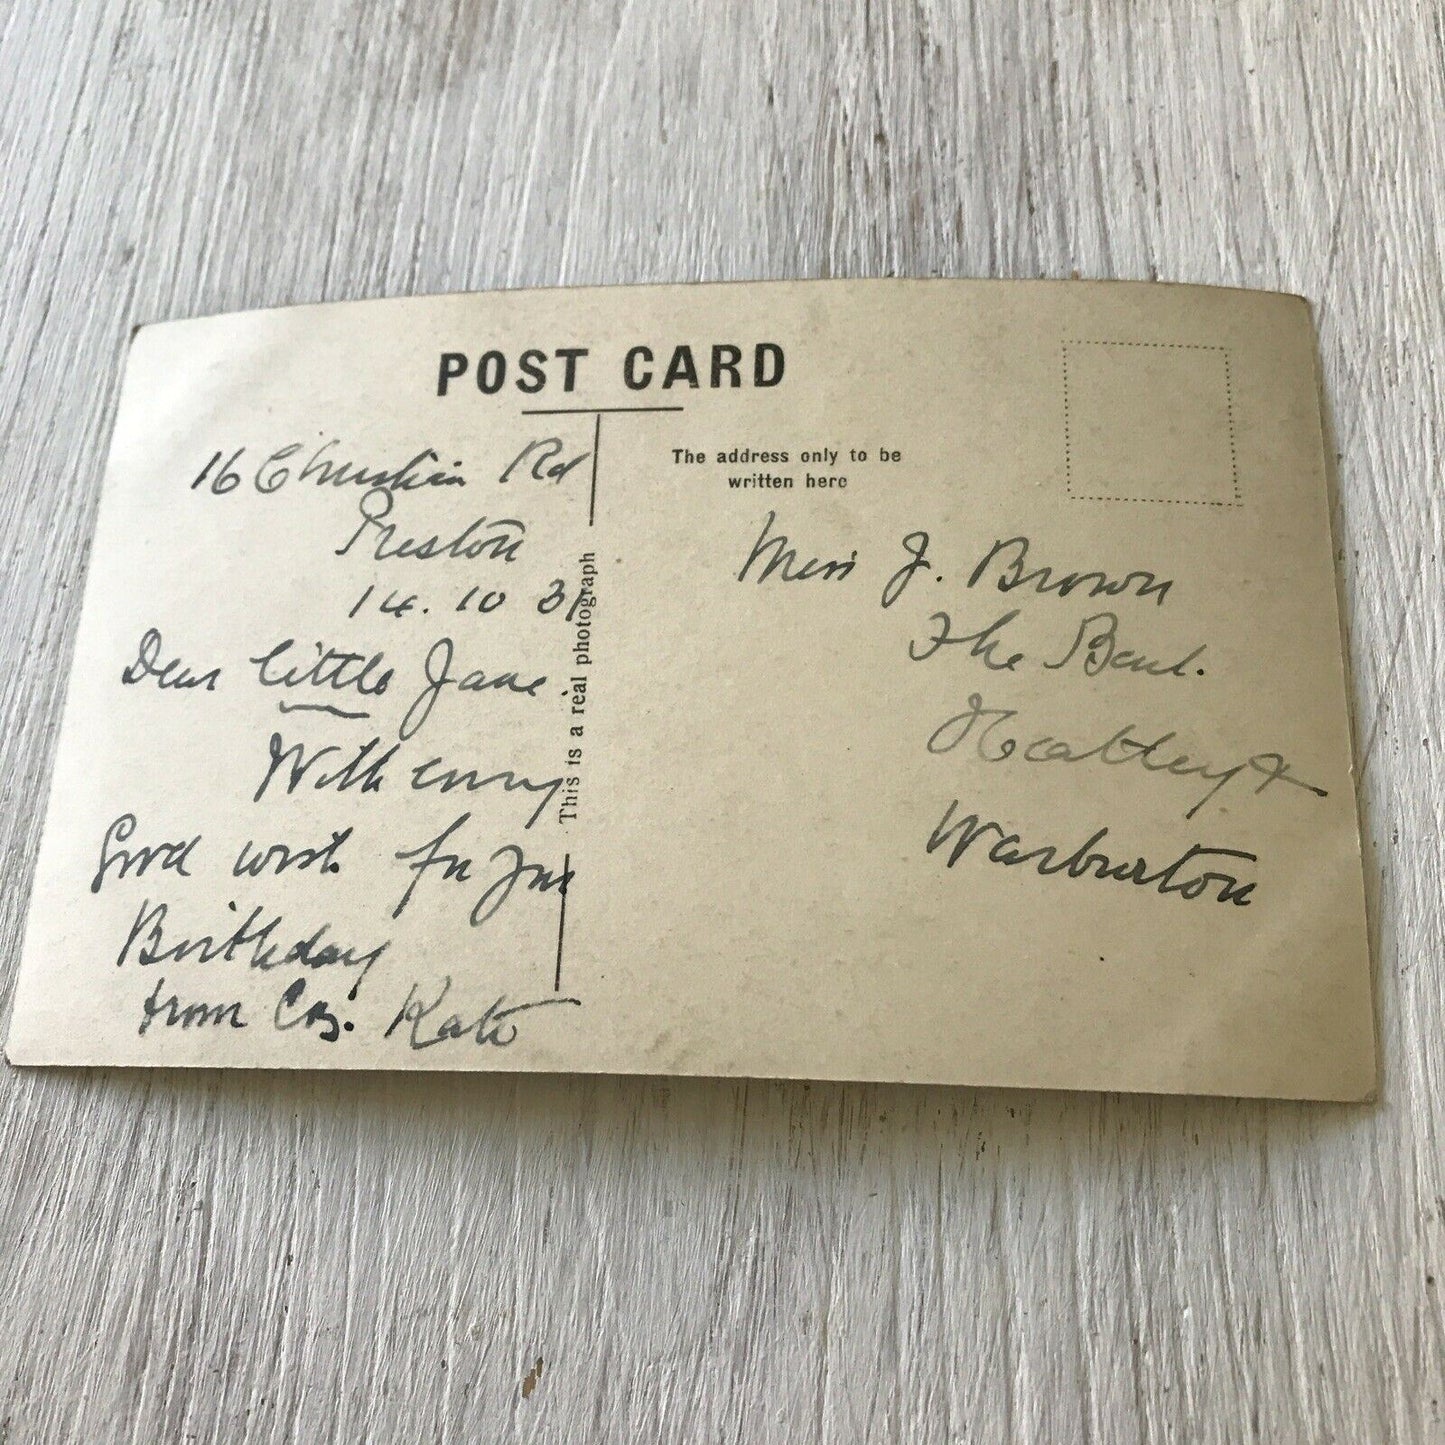 POST CARD
16 Christian Rd
Preston
14. 10 31
Dear little Jane.
With every
Good wish for your
Birthday
from Cos. Kate
This is a real photograph
The address only to be
written here
Miss J. Brown
The Bent.
Heatley &
Warburton